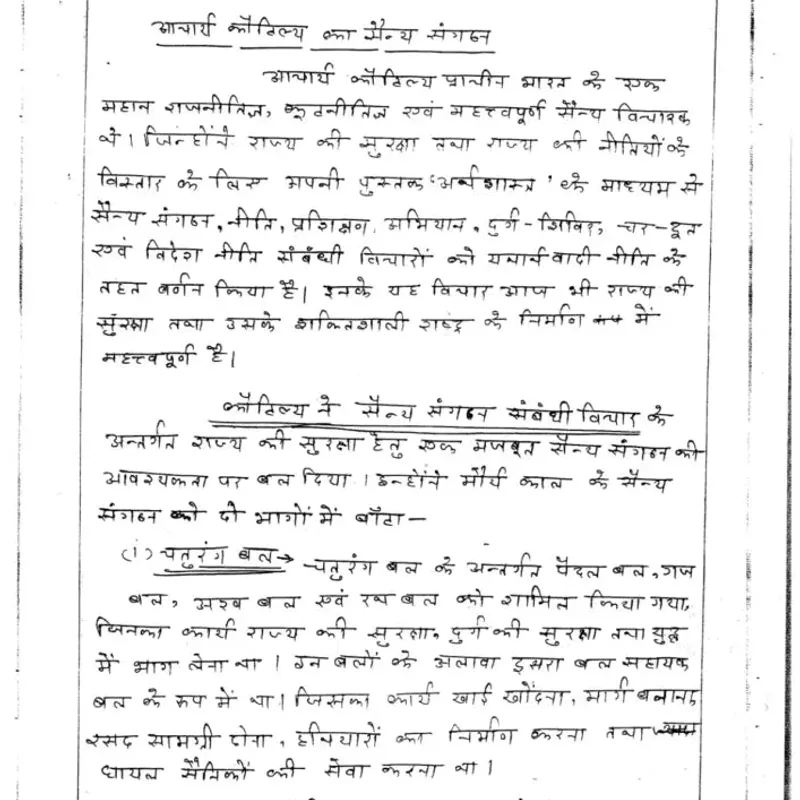 आचार्य कौटिल्य का सैन्य संगठन
आचार्य कौटिल्य प्राचीन भारत के एक
महान राजनीतिज्ञ, कूटनीतिज्ञ एवं महत्त्वपूर्ण सैन्य विचारक
थे। जिन्होंने राज्य की सुरक्षा तथा राज्य की नीतियों के
विस्तार के लिए अपनी पुस्तक 'अर्थशास्त्र' के माध्यम से
सैन्य संगठन, नीति, प्रशिक्षण, अभियान, दुर्ग-शिविर, चर-दूत
एवं विदेश नीति संबंधी विचारों को यथार्थवादी नीति के
तहत वर्णन किया है। इनके यह विचार आज भी राज्य की
सुरक्षा तथा उसके शक्तिशाली राष्ट्र के निर्माण में
महत्त्वपूर्ण है।
कौटिल्य ने सैन्य संगठन संबंधी विचार के
अन्तर्गत राज्य की सुरक्षा हेतु एक मजबूत सैन्य संगठन की
आवश्यकता पर बल दिया। इन्होंने मौर्य काल के सैन्य
संगठन को दो भागों में बाँटा –
(i) चतुरंग बल → चतुरंग बल के अन्तर्गत पैदल बल, गज
बल, अश्व बल एवं रथ बल को शामिल किया गया,
जिनका कार्य राज्य की सुरक्षा, दुर्ग की सुरक्षा तथा युद्ध
में भाग लेना था। इन बलों के अलावा दूसरा बल सहायक
बल के रूप में था। जिसका कार्य खाई खोंदना, मार्ग बनाना,
रसद सामग्री ढोना, हथियारों का निर्माण करना तथा
घायल सैनिकों की सेवा करना था।